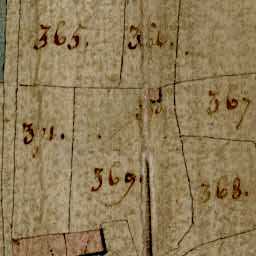 365.
367
371.
369.
368.